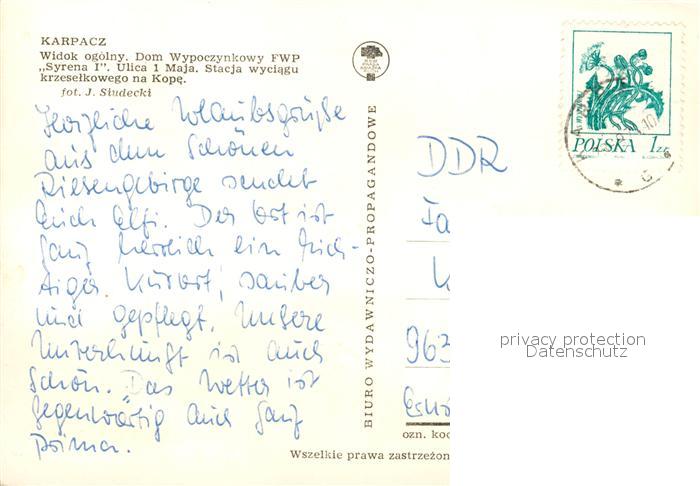 KARPACZ
Widok ogólny. Dom Wypoczynkowy FWP
„Syrena I". Ulica 1 Maja. Stacja wyciągu
krzesełkowego na Kopę.
fot. J. Siudecki
Herzliche Urlaubsgrüße
aus dem Schönen
Riesengebirge sendet
Euch Elfi. Der Ort ist
ganz herrlich ein rich-
tiger Kurort, sauber
und gepflegt. Unsere
Unterkunft ist auch
schön. Das Wetter ist
gegenwärtig auch ganz
prima.
BIURO WYDAWNICZO-PROPAGANDOWE
POLSKA 1 ZŁ
DDR
Fa
K
963
ozn. kod
Wszelkie prawa zastrzeżon
privacy protection
Datenschutz